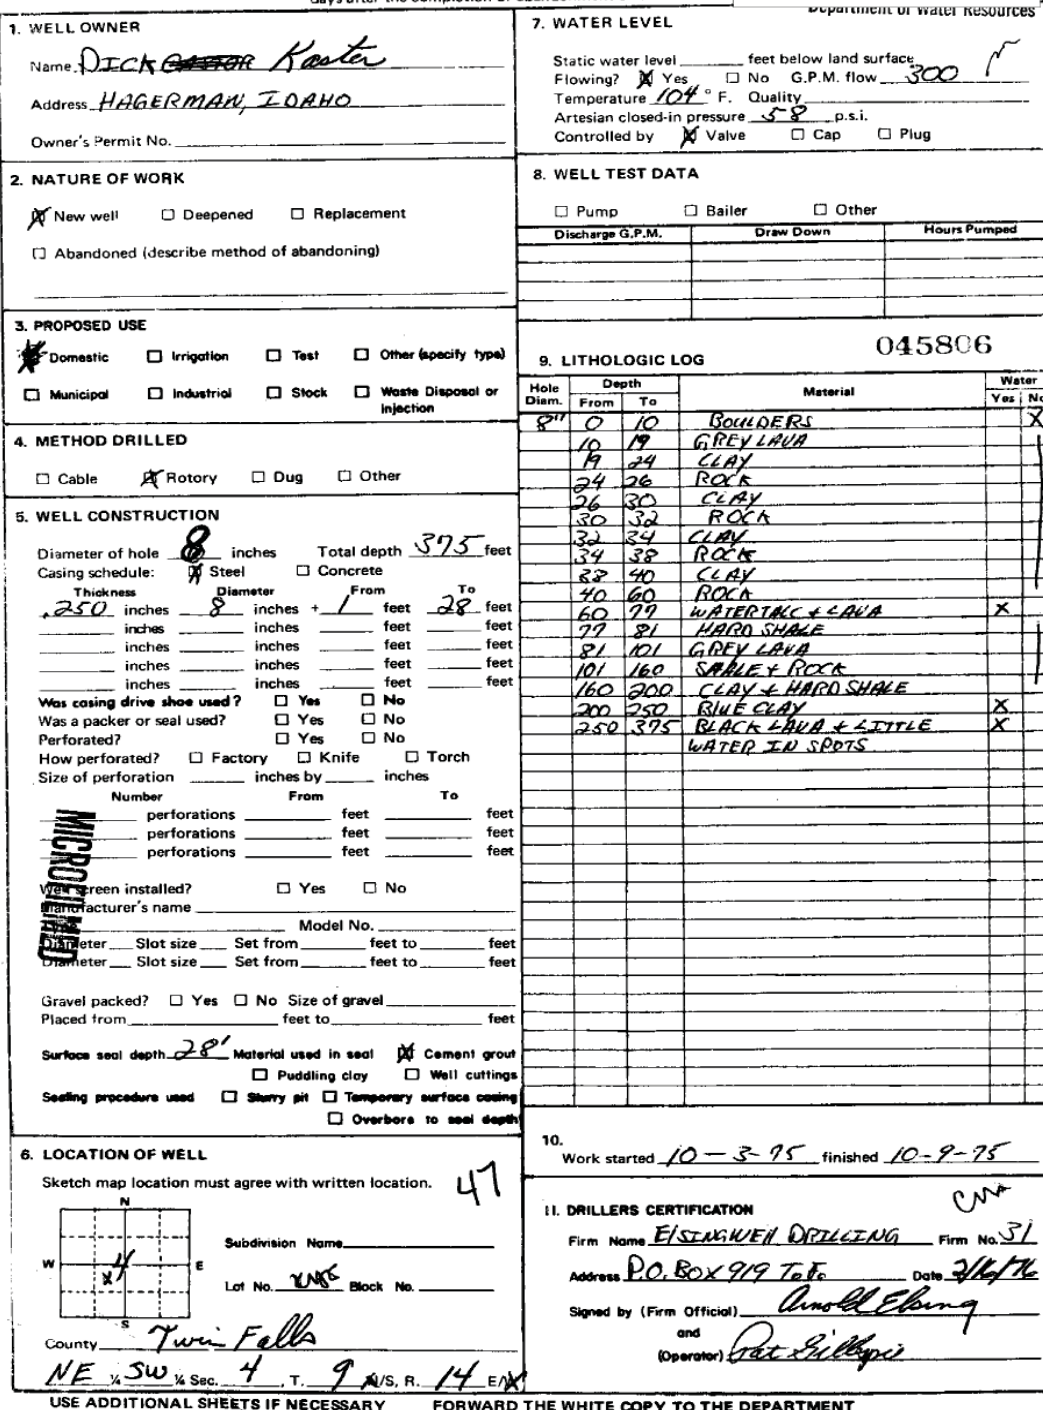 Department of Water Resources
1. WELL OWNER
Name DICK Kaster
Address HAGERMAN, IDAHO
Owner's Permit No.
2. NATURE OF WORK
☒ New well ☐ Deepened ☐ Replacement
☐ Abandoned (describe method of abandoning)
3. PROPOSED USE
☒ Domestic ☐ Irrigation ☐ Test ☐ Other (specify type)
☐ Municipal ☐ Industrial ☐ Stock ☐ Waste Disposal or
Injection
4. METHOD DRILLED
☐ Cable ☒ Rotory ☐ Dug ☐ Other
5. WELL CONSTRUCTION
Diameter of hole 8 inches Total depth 375 feet
Casing schedule: ☒ Steel ☐ Concrete
Thickness Diameter From To
.250 inches 8 inches + 1 feet 28 feet
inches inches feet feet
inches inches feet feet
inches inches feet feet
inches inches feet feet
Was casing drive shoe used? ☐ Yes ☐ No
Was a packer or seal used? ☐ Yes ☐ No
Perforated? ☐ Yes ☐ No
How perforated? ☐ Factory ☐ Knife ☐ Torch
Size of perforation inches by inches
Number From To
perforations feet feet
perforations feet feet
perforations feet feet
MICROFILMED
Well screen installed? ☐ Yes ☐ No
Manufacturer's name
Model No.
Diameter Slot size Set from feet to feet
Diameter Slot size Set from feet to feet
Gravel packed? ☐ Yes ☐ No Size of gravel
Placed from feet to feet
Surface seal depth 28' Material used in seal ☒ Cement grout
☐ Puddling clay ☐ Well cuttings
Sealing procedure used ☐ Slurry pit ☐ Temporary surface casing
☐ Overbore to seal depth
6. LOCATION OF WELL
Sketch map location must agree with written location.
47
N
W E
S
X 4
Subdivision Name
Lot No. Block No.
County Twin Falls
NE ¼ SW ¼ Sec. 4, T. 9 N/S, R. 14 E/W
7. WATER LEVEL
Static water level feet below land surface
Flowing? ☒ Yes ☐ No G.P.M. flow 300
Temperature 104 ° F. Quality
Artesian closed-in pressure 58 p.s.i.
Controlled by ☒ Valve ☐ Cap ☐ Plug
8. WELL TEST DATA
☐ Pump ☐ Bailer ☐ Other
Discharge G.P.M. Draw Down Hours Pumped
045806
9. LITHOLOGIC LOG
Hole Diam. Depth From To Material Water Yes No
8" 0 10 BOULDERS X
10 19 GREY LAVA
19 24 CLAY
24 26 ROCK
26 30 CLAY
30 32 ROCK
32 34 CLAY
34 38 ROCK
38 40 CLAY
40 60 ROCK
60 77 WATER TALC + LAVA X
77 81 HARD SHALE
81 101 GREY LAVA
101 160 SHALE + ROCK
160 200 CLAY + HARD SHALE
200 250 BLUE CLAY X
250 375 BLACK LAVA + LITTLE X
WATER IN SPOTS
10.
Work started 10-3-75 finished 10-9-75
11. DRILLERS CERTIFICATION
Firm Name ELSING WELL DRILLING Firm No. 31
Address P.O. BOX 919 T.F. Date 2/16/76
Signed by (Firm Official) Arnold Elsing
and
(Operator) Pat Gillespie
USE ADDITIONAL SHEETS IF NECESSARY FORWARD THE WHITE COPY TO THE DEPARTMENT